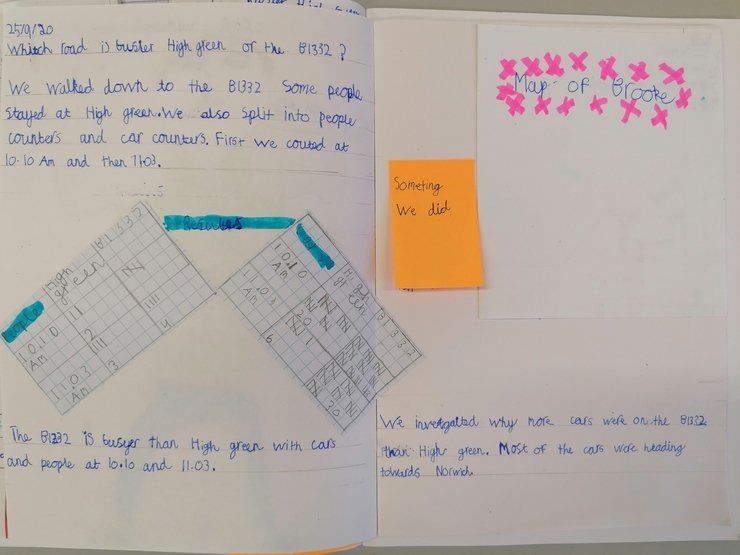 25/9/20
Which road is busier High green or the B1332 ?
We walked down to the B1332 Some people
Stayed at High green. We also split into people
counters and car counters. First we couted at
10.10 Am and then 11.03.
Results
People
High green
B1332
10.10 Am
2
11.03 Am
3
4
10.10 Am
High green
B1332
11.03 Am
6
The B1332 is busyer than High green with cars
and people at 10.10 and 11.03.
Map of Brooke
Someting
We did.
We investgatted why more cars were on the B1332
than High green. Most of the cars were heading
towards Norwich.